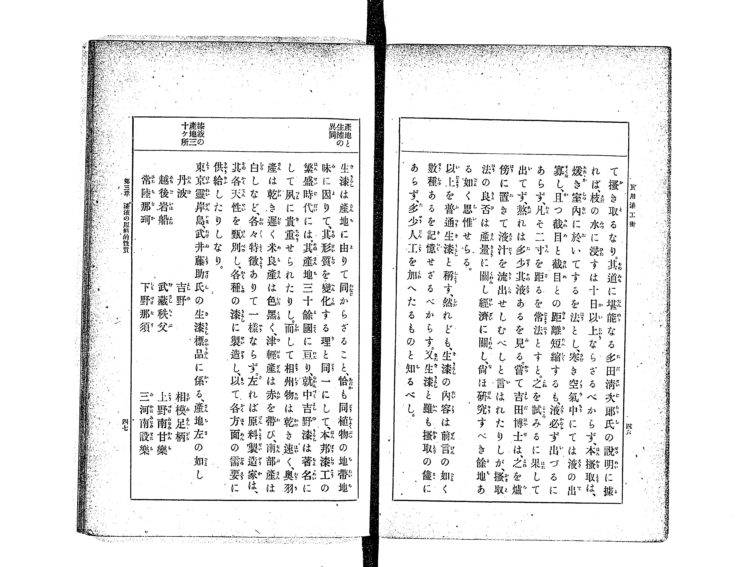 實用漆工術
て搔き取るなり。其道に堪能なる多田清次郎氏の說明に據
れば、枝の水に浸すは十日以上ならざるべからず、本搔取は、
煖き室內に於いてするを法とし、寒き空氣中にては液の出
寡し、且つ截目と截目との距離短縮するも、液必ず出づるに
あらず、凡そ二寸を距るを常法とすと、之を試みるに果して
出てす、然れは多少其液あるを見る、嘗て吉田博士は、之を爐
傍に置きて液汁を流出せしむべしと言はれたりしが、搔取
法の良否は產量に關し經濟に關し、尙ほ硏究すべき餘地あ
る如く思惟せらる。
以上を普通生漆と稱す、然れども、生漆の內容は前言の如く
數種あるを記憶せざるべからず、又生漆と雖も搔取の儘に
あらず、多少人工を加へたるものと知るべし。
四六
產地と
生漆の
異同
生漆は產地に由りて同からざること、恰も同植物の地帶地
味に因りて、其形質を變化する理と同一にして、本邦漆工の
繁盛時代には、其產地三十餘國に亘り、就中吉野漆は著名に
して夙に貴重せられたりし。而して相州物は乾き速く、奧羽
產は乾き遲く、木良產は色黑く、津輕產は赤を帶び、南部產は
白しなど、各々特徵ありて一樣ならず、左れば原料製造家は、
其各天性を甄別し、各種の漆に製造し、以て各方面の需要に
供給したりしなり。
漆液の
產地三
十ケ所
東京靈岸島武井藤助氏の生漆標品に係る、產地左の如し
丹波 吉野 相模足柄
越後岩船 武藏秩父 上野南甘樂
常陸那珂 下野那須 三河南設樂
第三章 漆液の原料的性質
四七